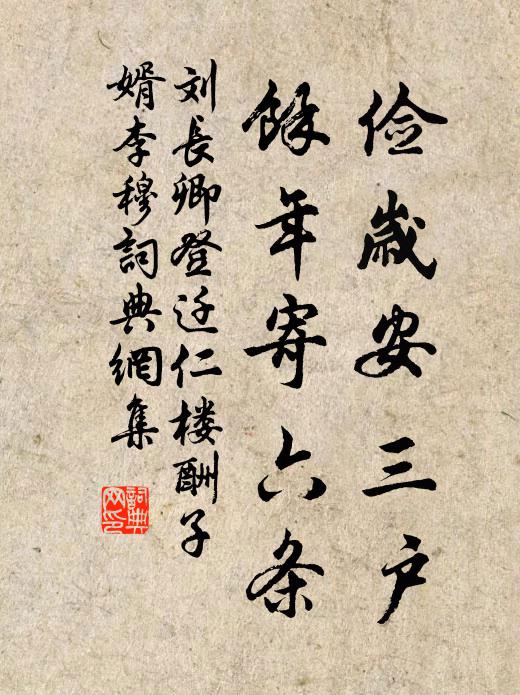 俭歲安三户
餘年寄六条
刘長卿登迁仁楼酬子
婿李穆詞典網集
詞典
网印